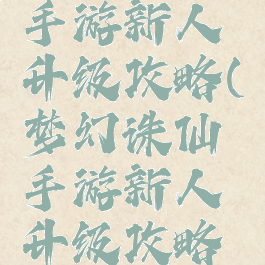 手游新人
升级攻略(
梦幻诛仙
手游新人
升级攻略